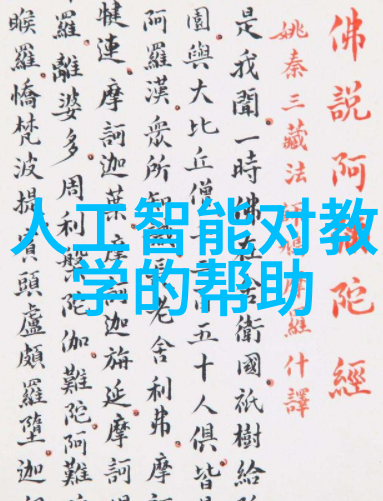 人工智能对教
学的帮助
佛說阿陀經
姚秦三藏法摩羅什譯
是我聞一時佛在舍衛國祇樹給
園與大比丘僧百五十人俱皆
阿羅漢眾所知識長老舍利弗摩
犍連摩訶迦葉摩訶迦旃延摩訶
羅離婆多周利槃陀伽難陀阿難
睺羅憍梵波提賓頭盧頗羅墮迦